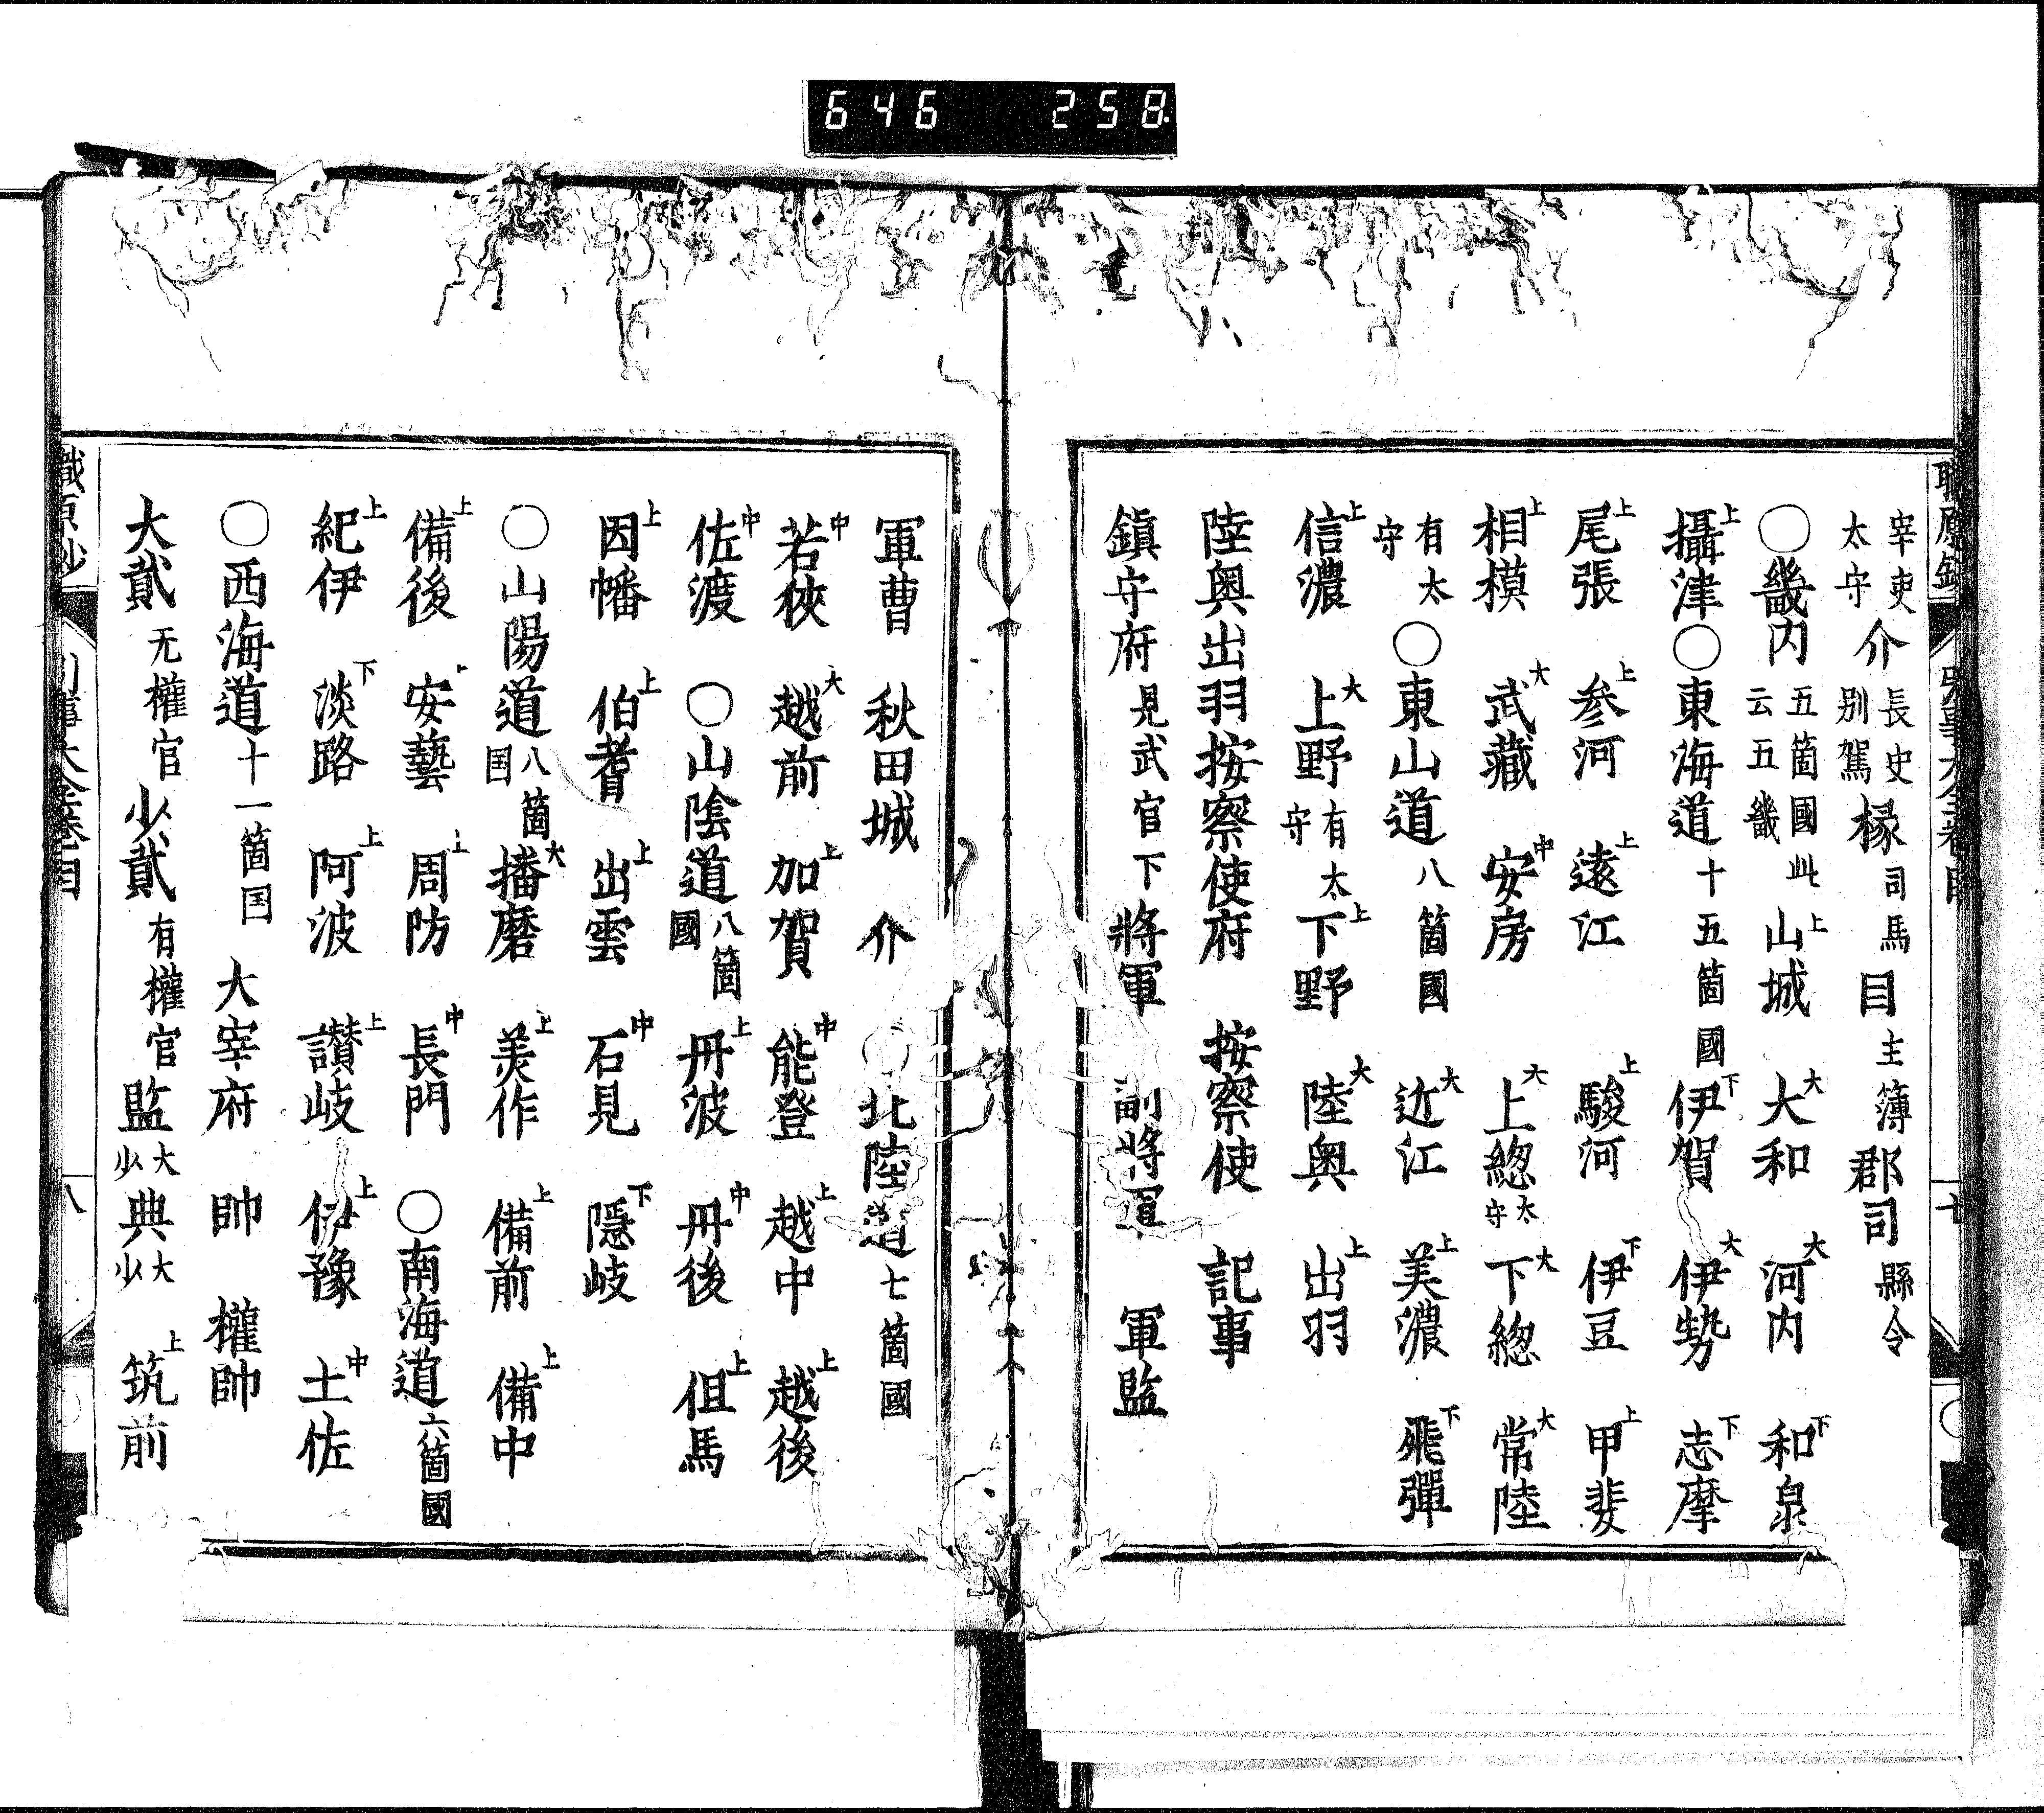 646 258
宰吏太守 介 長史別駕 椽 司馬 目 主簿 郡司 縣令
〇畿内 五箇國此云五畿 上山城 大大和 大河内 下和泉
上攝津〇東海道 十五箇國 下伊賀 大伊勢 下志摩
上尾張 上参河 上遠江 上駿河 下伊豆 上甲斐
上相模 大武藏 中安房 大上総 太守 大下総 大常陸
有太守 〇東山道 八箇國 大近江 上美濃 下飛彈
上信濃 大上野 有太守 上下野 大陸奥 上出羽
陸奥出羽按察使府 按察使 記事
鎮守府 見武官下 將軍 副將軍 軍監
軍曹 秋田城 介 〇北陸道 七箇國
中若狹 大越前 上加賀 中能登 上越中 上越後
中佐渡 〇山陰道 八箇國 上丹波 中丹後 上但馬
上因幡 上伯耆 上出雲 中石見 下隱岐
〇山陽道 八箇国 大播磨 上美作 上備前 上備中
上備後 安藝 周防 中長門 〇南海道 六箇國
上紀伊 下淡路 上阿波 上讃岐 上伊豫 中土佐
〇西海道 十一箇国 大宰府 帥 權帥
大貳 无權官 少貳 有權官 監 大少 典 大少 上筑前
八